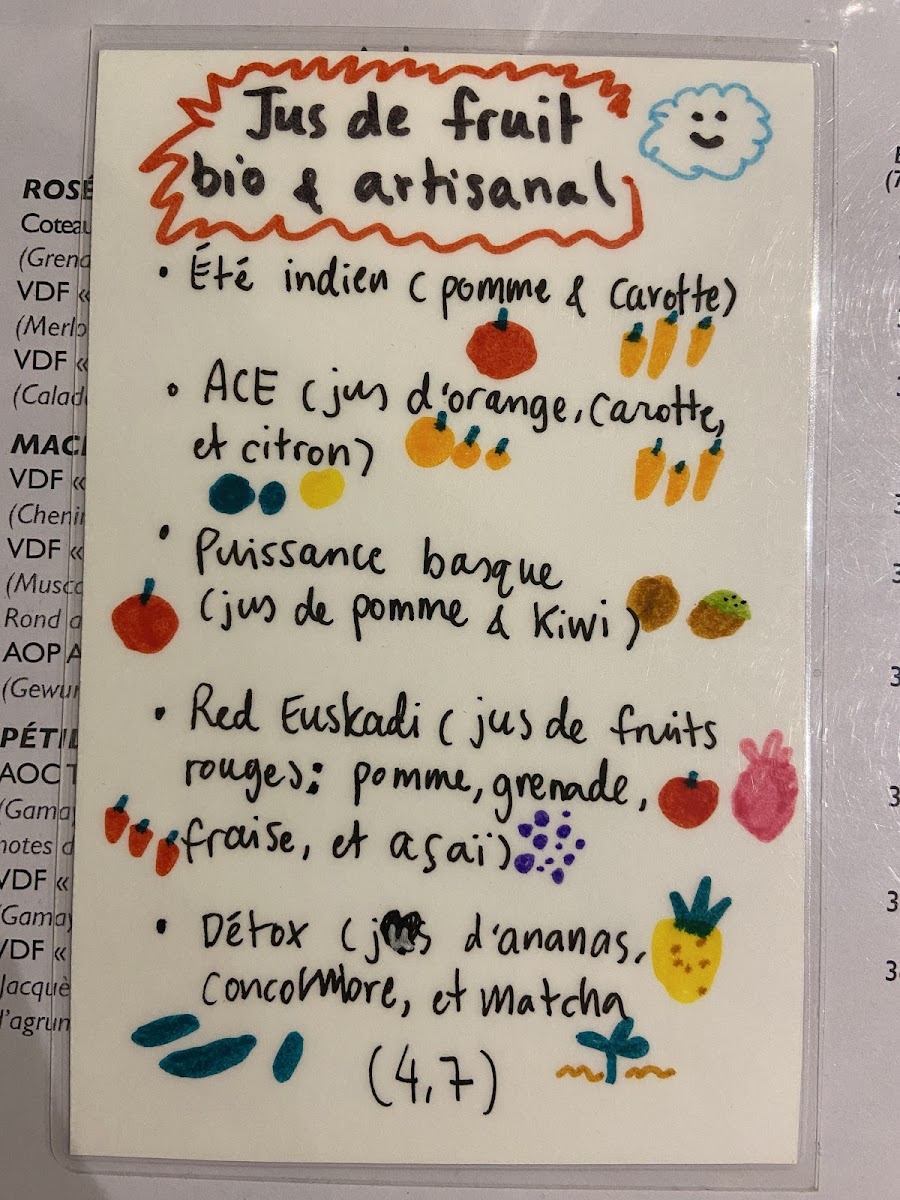 Jus de fruit
bio & artisanal
• Été indien (pomme & carotte)
• ACE (jus d'orange, carotte,
et citron)
• Puissance basque
(jus de pomme & Kiwi)
• Red Euskadi (jus de fruits
rouges: pomme, grenade,
fraise, et açaï)
• Détox (jus d'ananas,
concombre, et matcha
(4,7)
ROSÉ
Coteau
(Grena
VDF «
(Merlo
VDF «
(Calad
MAC
VDF «
(Chenin
VDF «
(Musca
Rond a
AOP A
(Gewur
PÉTIL
AOC T
(Gamay
notes d
VDF «
(Gamay
VDF «
Jacquè
d'agrun